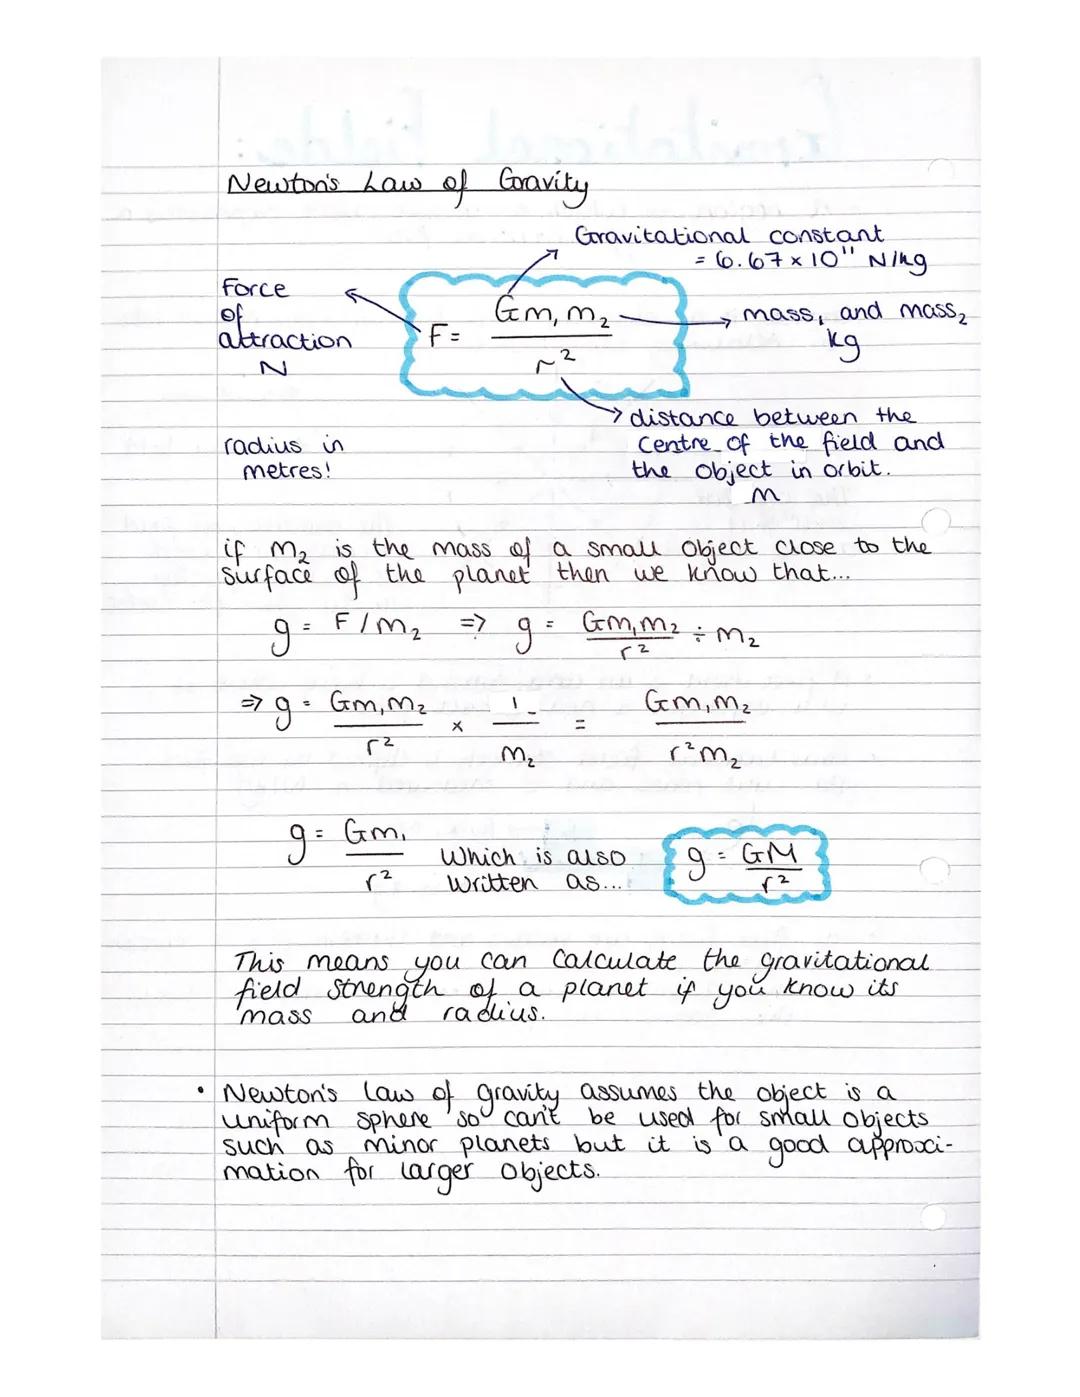 Newton's Law of Gravity
Gravitational constant
= 6.67 x 10¹¹ N/kg
Force
of
attraction
N
F = Gm₁m₂ / r²
mass₁ and mass₂
kg
distance between the
centre of the field and
the object in orbit.
m
radius in
metres!
if m₂ is the mass of a small object close to the
surface of the planet then we know that...
g = F / m₂ => g = Gm₁m₂ / r² ÷ m₂
=> g = Gm₁m₂ / r² x 1 / m₂ = Gm₁m₂ / r²m₂
g = Gm₁ / r² which is also
written as...
g = GM / r²
This means you can calculate the gravitational
field strength of a planet if you know its
mass and radius.
• Newton's law of gravity assumes the object is a
uniform sphere so can't be used for small objects
such as minor planets but it is a good approxi-
mation for larger objects.